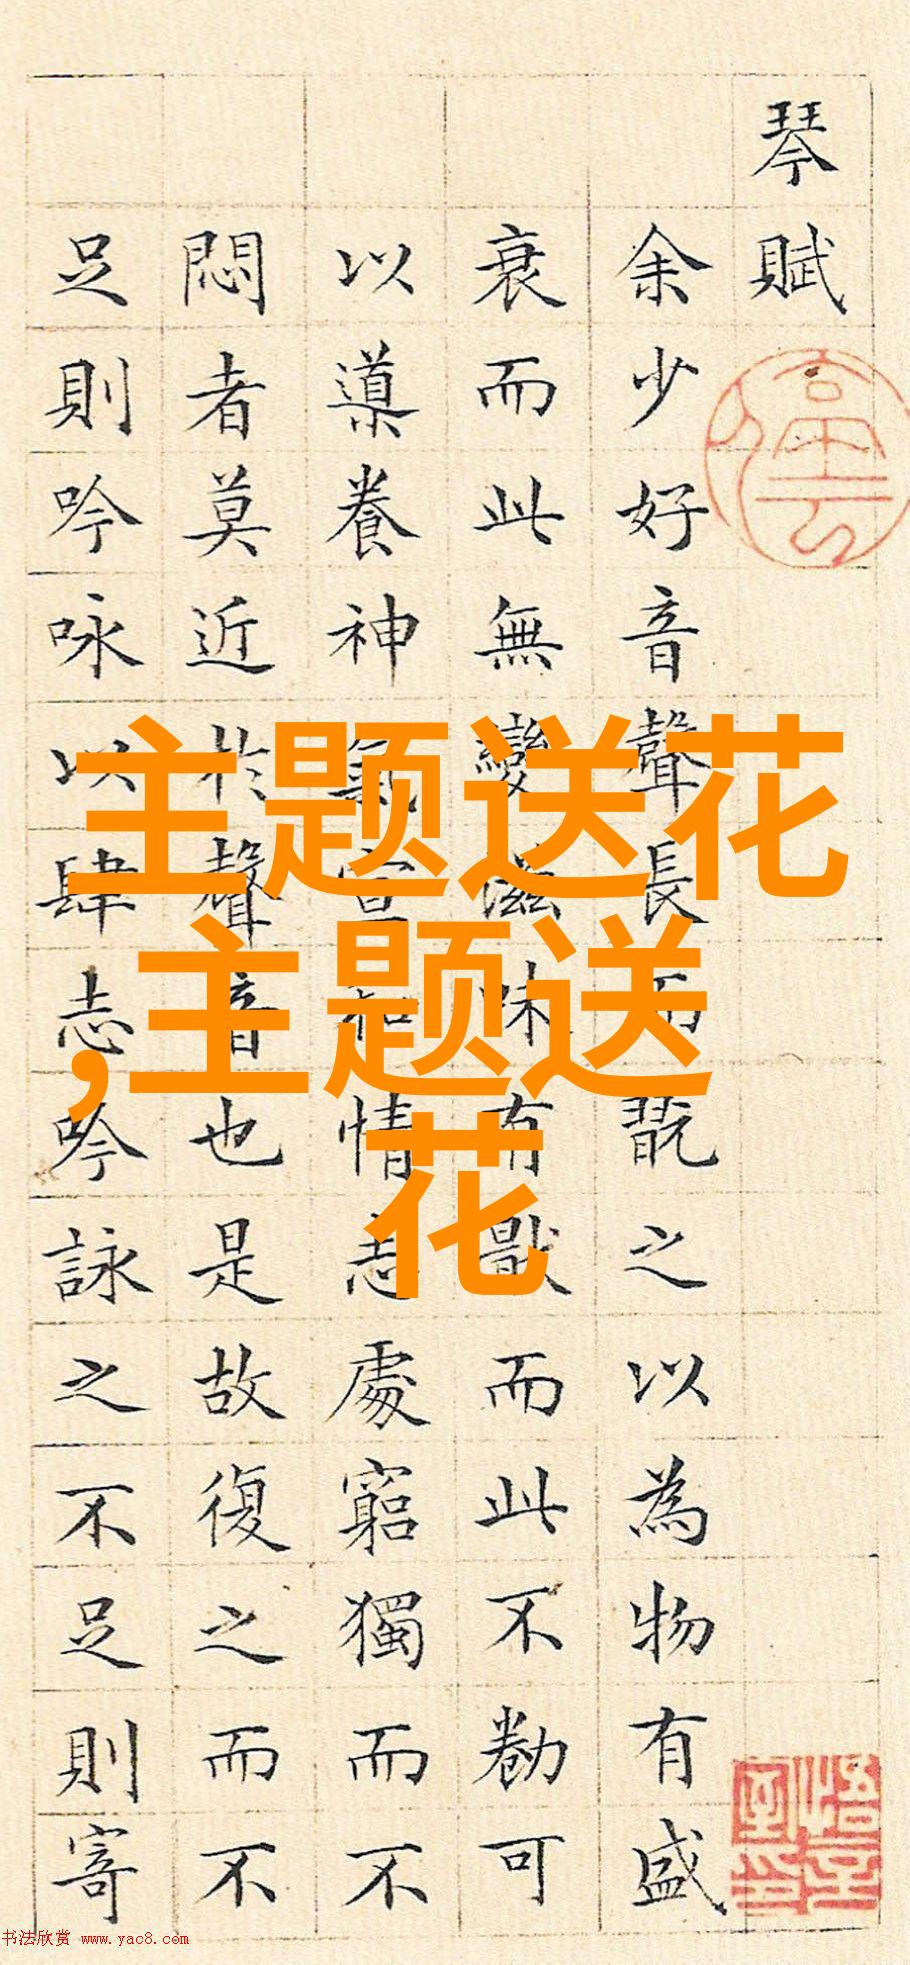 琴賦
余少好音聲長而翫之以為物有盛
衰而此無變滋味有猒而此不勌可
以導養神氣宣和情志處窮獨而不
悶者莫近於聲音也是故復之而不
足則吟咏以肆志吟詠之不足則寄
主题送花
,主题送
花
书法欣赏 www.yac8.com